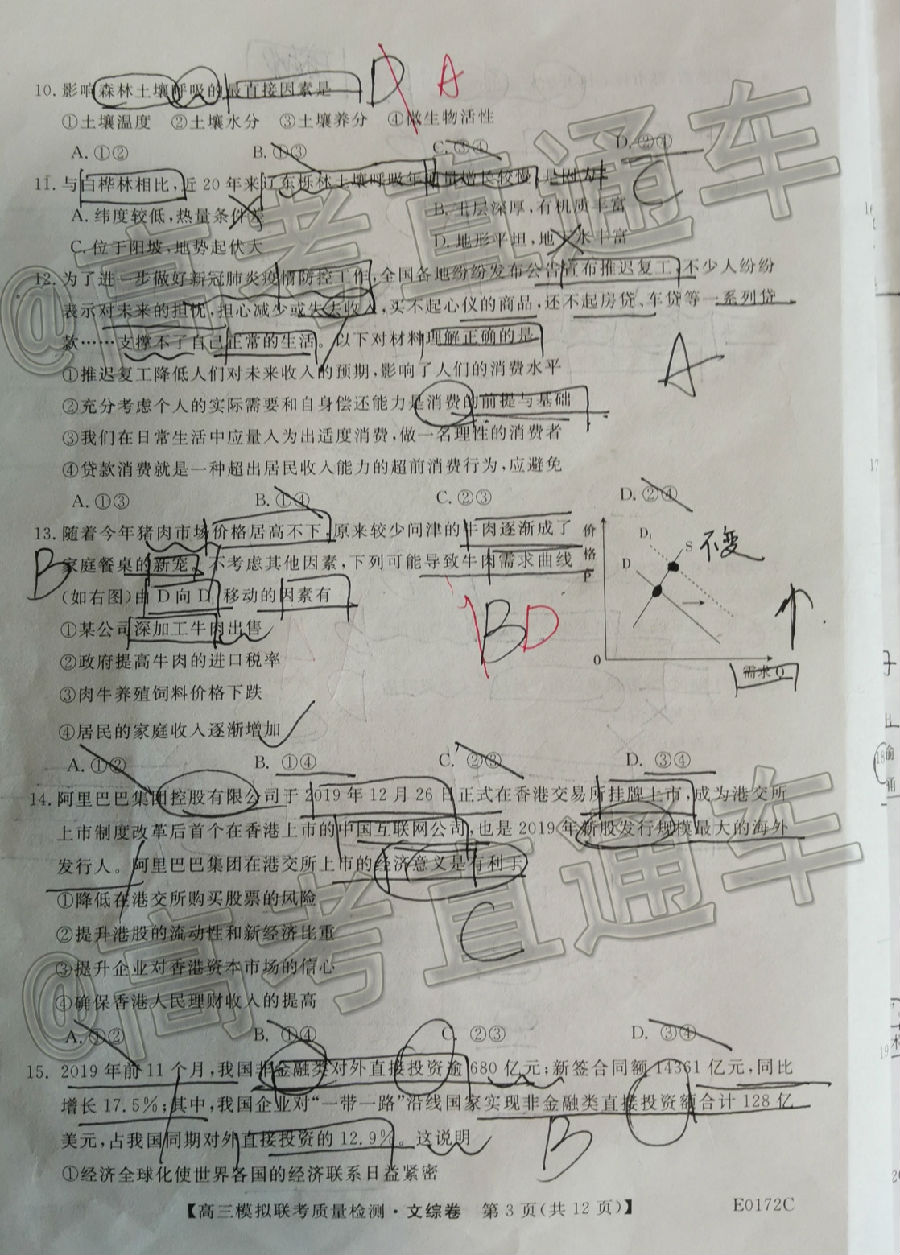 10.影响森林土壤呼吸的最直接因素是
D A
①土壤温度 ②土壤水分 ③土壤养分 ④微生物活性
A.①② B.①③ C.③④ D.②④
11.与白桦林相比,近20年来辽东栎林土壤呼吸年通量增长较慢,是因为
C
A.纬度较低,热量条件 B.土层深厚,有机质丰富
C.位于阳坡,地势起伏大 D.地形平坦,地下水丰富
12.为了进一步做好新冠肺炎疫情防控工作,全国各地纷纷发布公告宣布推迟复工,不少人纷纷
表示对未来的担忧,担心减少或失去收入,买不起心仪的商品,还不起房贷、车贷等一系列贷
款……支撑不了自己正常的生活。以下对材料理解正确的是
A
①推迟复工降低人们对未来收入的预期,影响了人们的消费水平
②充分考虑个人的实际需要和自身偿还能力是消费的前提与基础
③我们在日常生活中应量入为出适度消费,做一名理性的消费者
④贷款消费就是一种超出居民收入能力的超前消费行为,应避免
A.①③ B.①④ C.②③ D.②④
13.随着今年猪肉市场价格居高不下,原来较少问津的牛肉逐渐成了
家庭餐桌的新宠。不考虑其他因素,下列可能导致牛肉需求曲线
(如右图)由D向D₁移动的因素有
B
①某公司深加工牛肉出售
②政府提高牛肉的进口税率
③肉牛养殖饲料价格下跌
④居民的家庭收入逐渐增加
B D
价格P
D₁
S
D
不变
0
需求Q
A.①② B.①④ C.②③ D.③④
14.阿里巴巴集团控股有限公司于2019年12月26日正式在香港交易所挂牌上市,成为港交所
上市制度改革后首个在香港上市的中国互联网公司,也是2019年新股发行规模最大的海外
发行人。阿里巴巴集团在港交所上市的经济意义是有利于
①降低在港交所购买股票的风险
②提升港股的流动性和新经济比重
C
③提升企业对香港资本市场的信心
④确保香港人民理财收入的提高
A.①② B.①④ C.②③ D.③④
15.2019年前11个月,我国非金融类对外直接投资逾680亿元;新签合同额14361亿元,同比
增长17.5%;其中,我国企业对“一带一路”沿线国家实现非金融类直接投资额合计128亿
美元,占我国同期对外直接投资的12.9%。这说明
B
①经济全球化使世界各国的经济联系日益紧密
【高三模拟联考质量检测·文综卷 第3页(共12页)】 E0172C
@高考直通车
@高考直通车